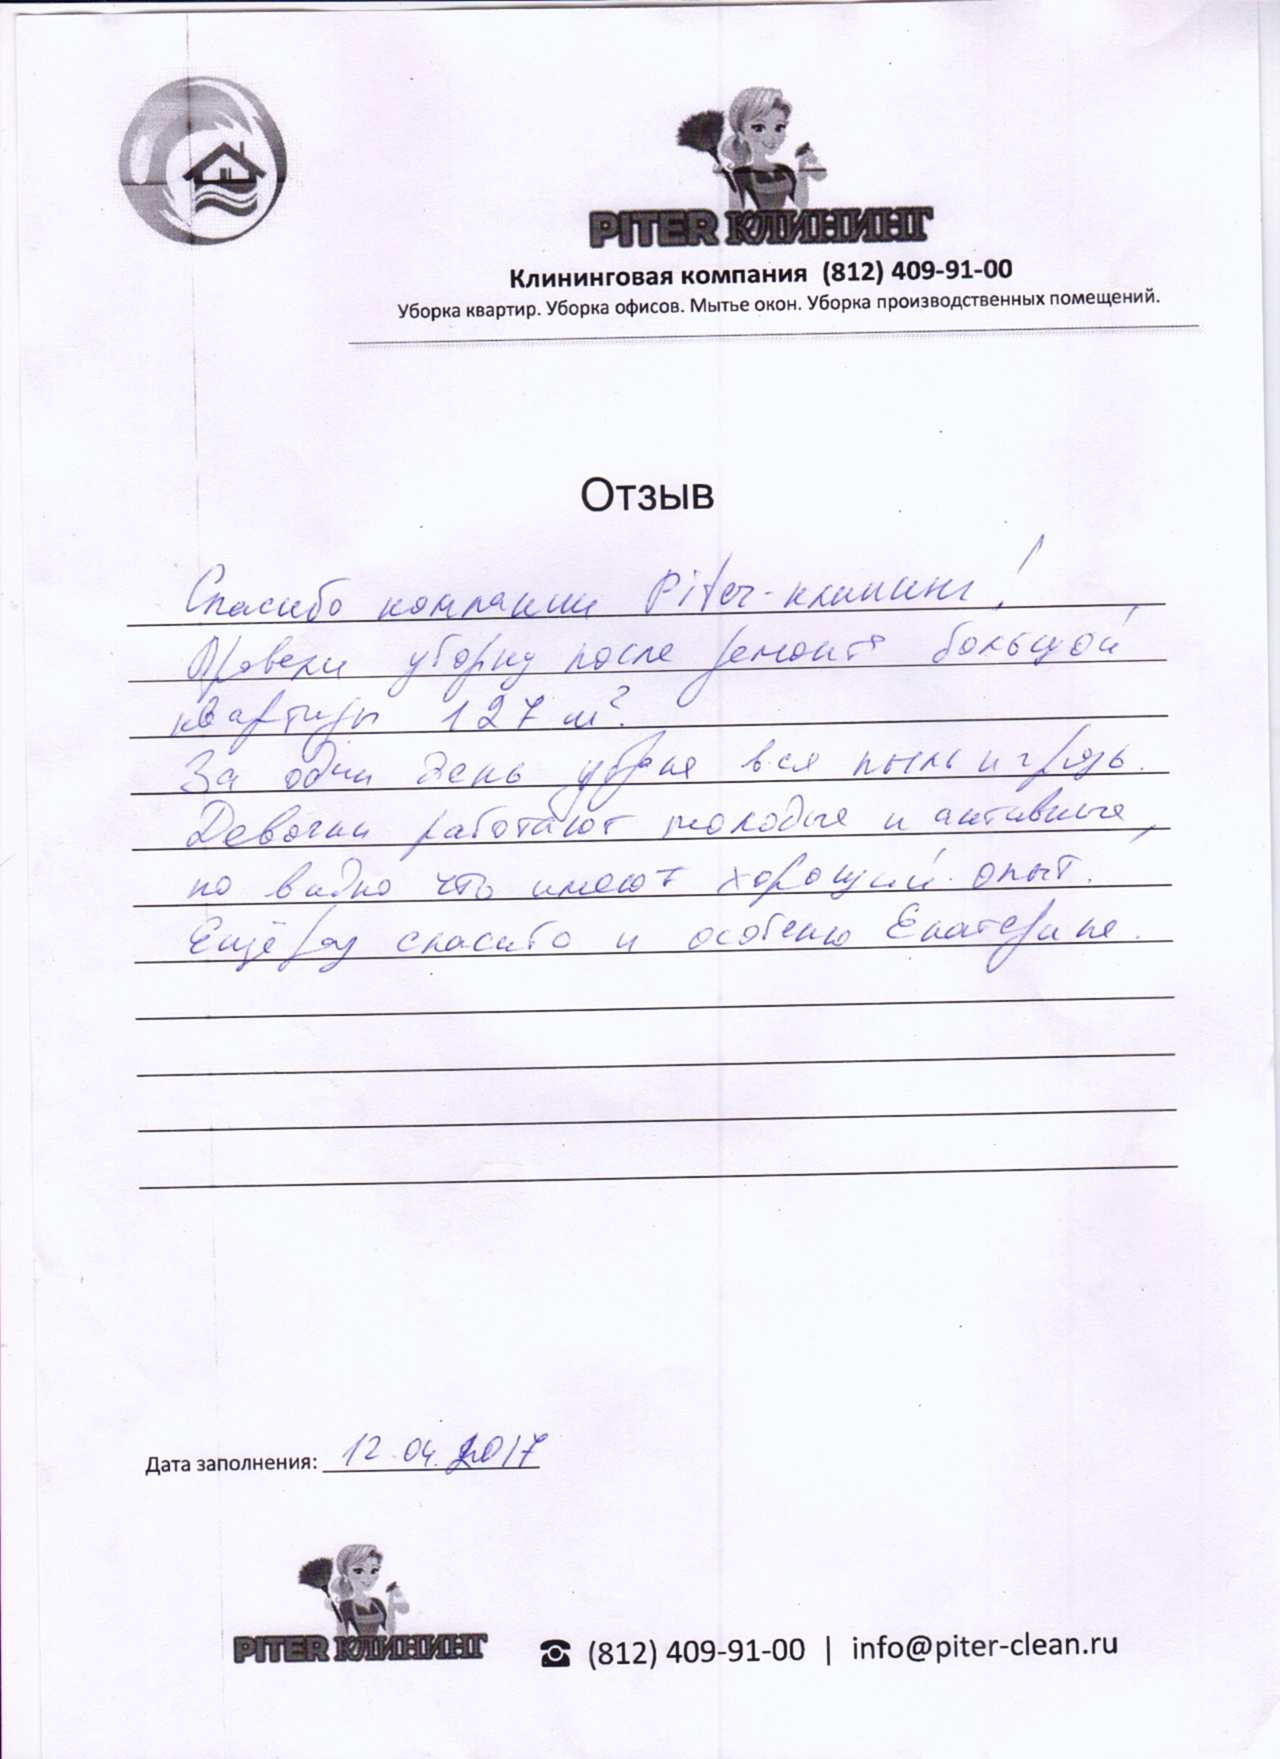 PITER КЛИНИНГ
Клининговая компания (812) 409-91-00
Уборка квартир. Уборка офисов. Мытье окон. Уборка производственных помещений.
Отзыв
Спасибо компании Piter-клининг!
Провели уборку после ремонта большой
квартиры 127 м².
За один день убрана вся пыль и грязь.
Девочки работают молодые и активные,
но видно что имеют хороший опыт.
Ещё раз спасибо и особенно Екатерине.
Дата заполнения: 12.04.2017
PITER КЛИНИНГ
(812) 409-91-00 | info@piter-clean.ru